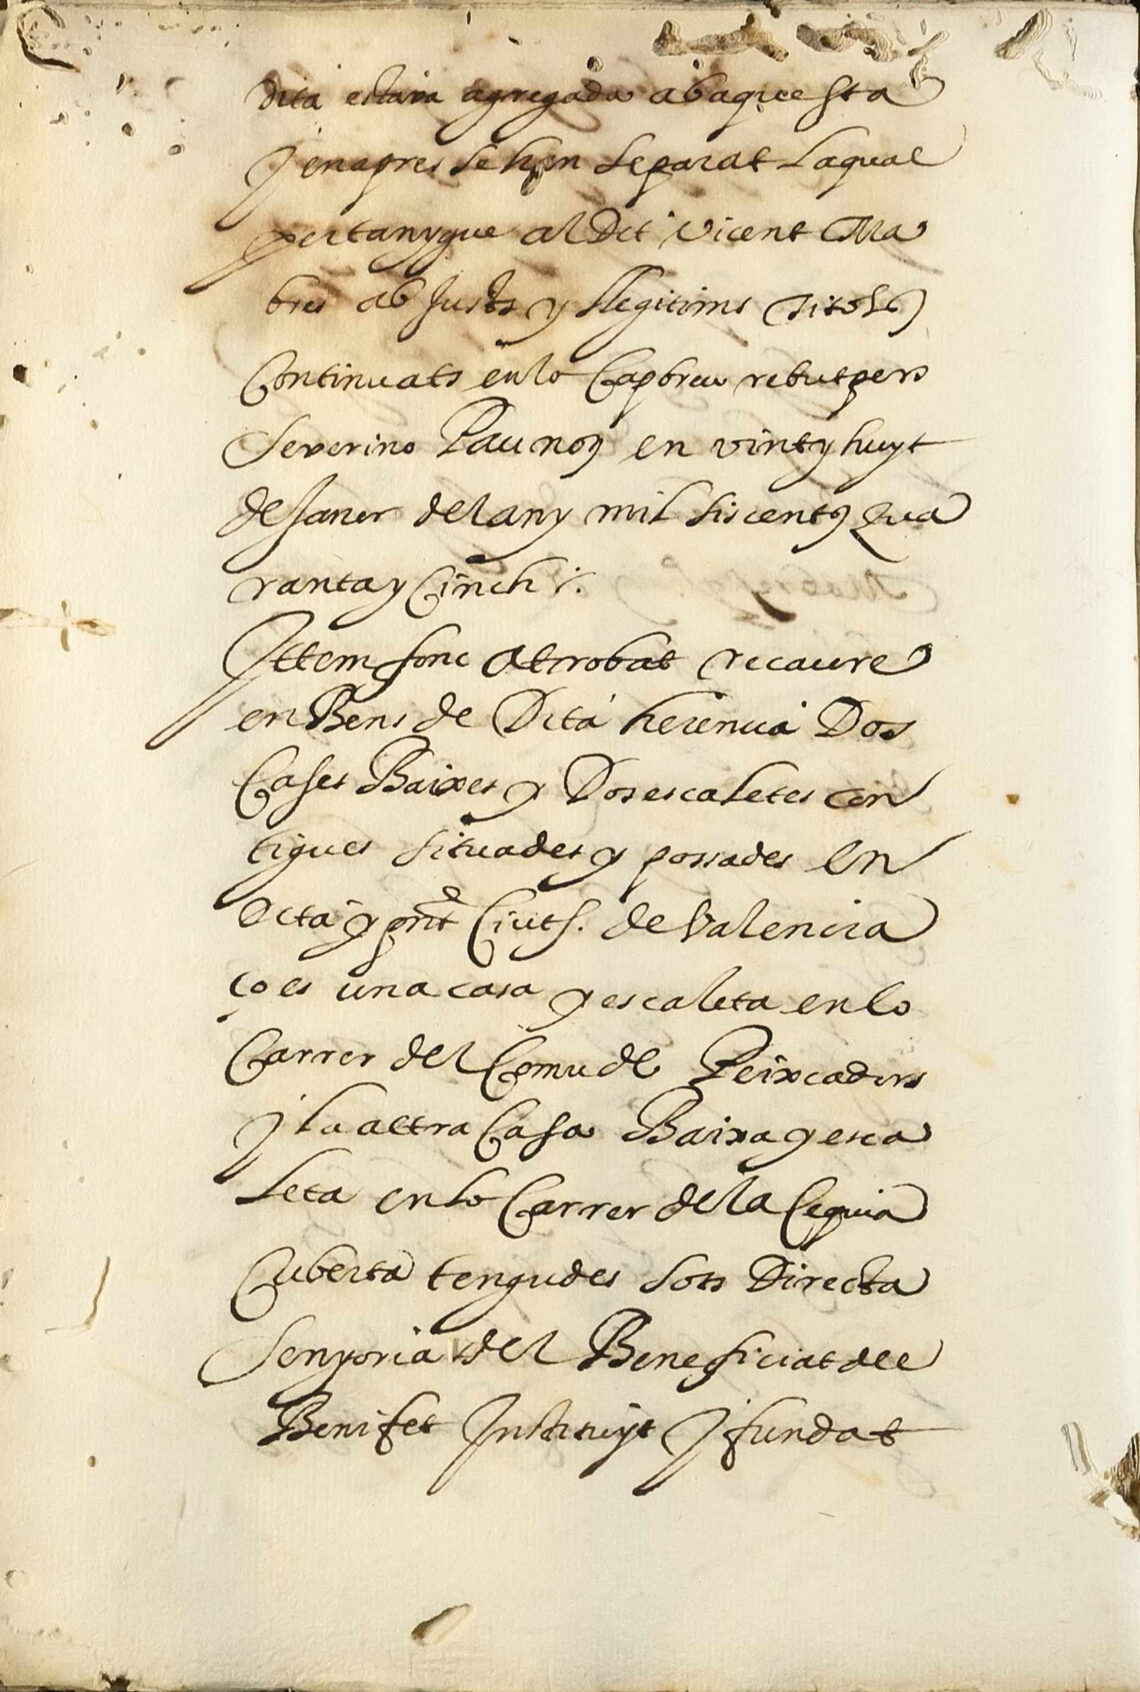 dita estava agregada ab aquesta
y en apres se han separat laqual
pertanygue al dit Vicent Ma
bres ab Justs y llegitims titols
Continuats en lo Capbreu rebut pers
Severino Pau noț en vint y huyt
de Janer del any mil siscents qua
ranta y Cinch ÷
Ittem fonc atrobat recaure
en Bens de Dita herencia Dos
Cases Baixes y Dos escaletes con
tigues situades y possades en
dcta y pnt Ciutt. de Valencia
ço es una casa y escaleta en lo
Carrer del Comu de Peixcadors
y la altra Casa Baixa y esca
leta en lo Carrer de la Cequia
Cuberta tengudes sots Directa
Senyoria del Beneficiat del
Benifet Instituyt y fundat